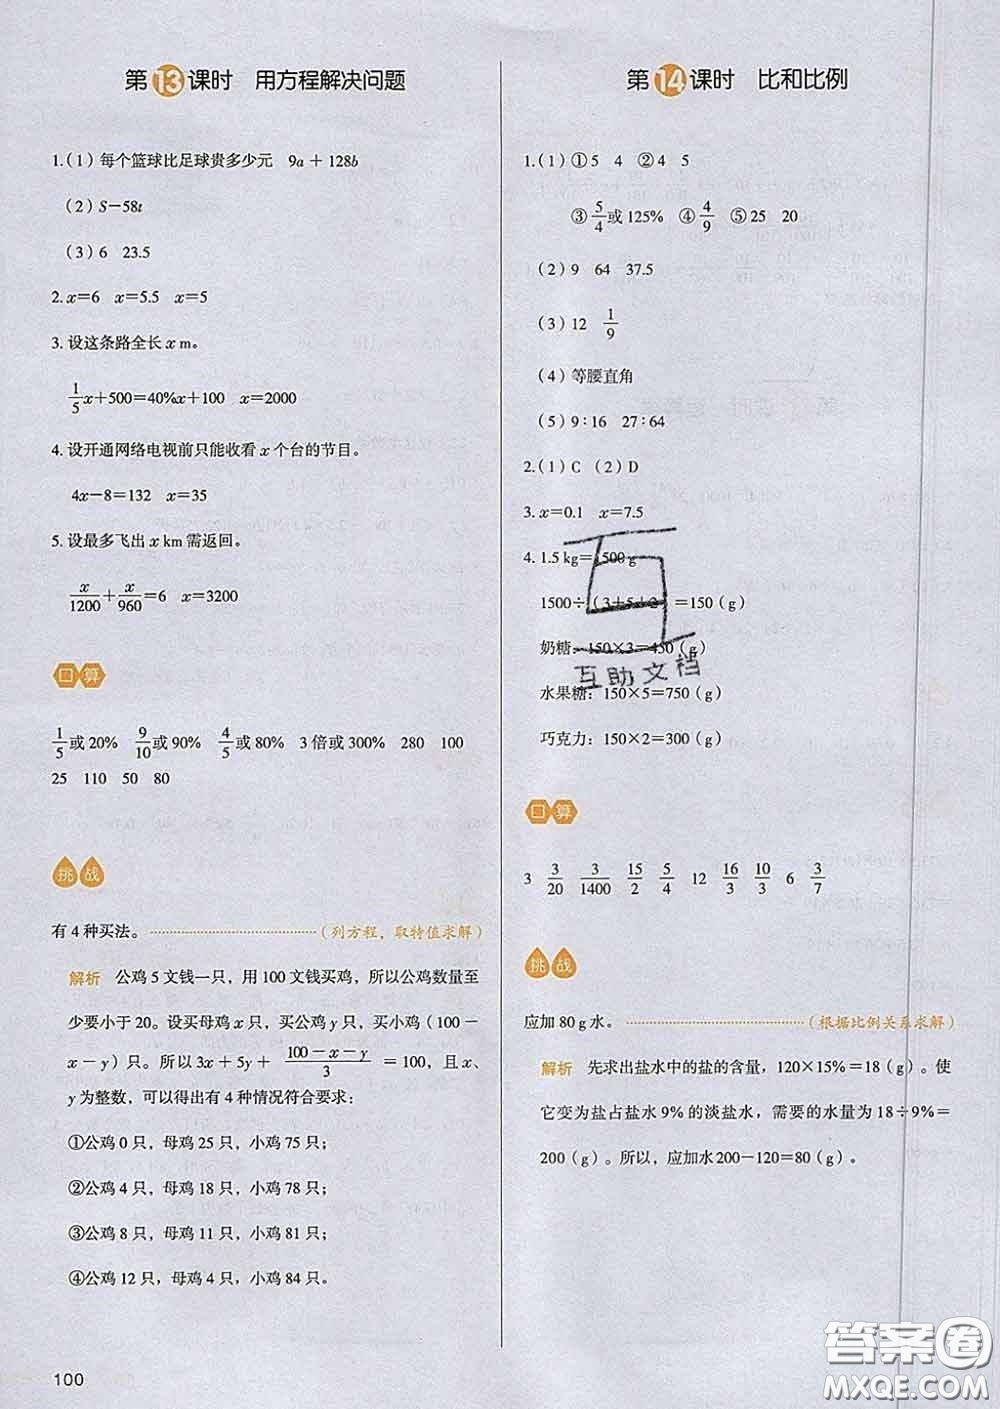 第13课时 用方程解决问题
1.(1)每个篮球比足球贵多少元 9a+128b
(2)S-58t
(3)6 23.5
2.x=6 x=5.5 x=5
3.设这条路全长x m。
1/5x+500=40%x+100 x=2000
4.设开通网络电视前只能收看x个台的节目。
4x-8=132 x=35
5.设最多飞出x km需返回。
x/1200+x/960=6 x=3200
口算
1/5或20% 9/10或90% 4/5或80% 3倍或300% 280 100
25 110 50 80
挑战
有4种买法。(列方程,取特值求解)
解析 公鸡5文钱一只,用100文钱买鸡,所以公鸡数量至
少要小于20。设买母鸡x只,买公鸡y只,买小鸡(100-
x-y)只。所以3x+5y+(100-x-y)/3=100,且x、
y为整数,可以得出有4种情况符合要求:
①公鸡0只,母鸡25只,小鸡75只;
②公鸡4只,母鸡18只,小鸡78只;
③公鸡8只,母鸡11只,小鸡81只;
④公鸡12只,母鸡4只,小鸡84只。
100
第14课时 比和比例
1.(1)①5 4 ②4 5
③5/4或125% ④4/9 ⑤25 20
(2)9 64 37.5
(3)12 1/9
(4)等腰直角
(5)9:16 27:64
2.(1)C (2)D
3.x=0.1 x=7.5
4.1.5 kg=1500 g
1500÷(3+5+2)=150(g)
奶糖:150×3=450(g)
水果糖:150×5=750(g)
巧克力:150×2=300(g)
互助文档
口算
3 3/20 3/1400 15/2 5/4 12 16/3 10/3 6 3/7
挑战
应加80 g水。(根据比例关系求解)
解析 先求出盐水中的盐的含量,120×15%=18(g)。使
它变为盐占盐水9%的淡盐水,需要的水量为18÷9%=
200(g)。所以,应加水200-120=80(g)。
答案圈
MXQE.COM